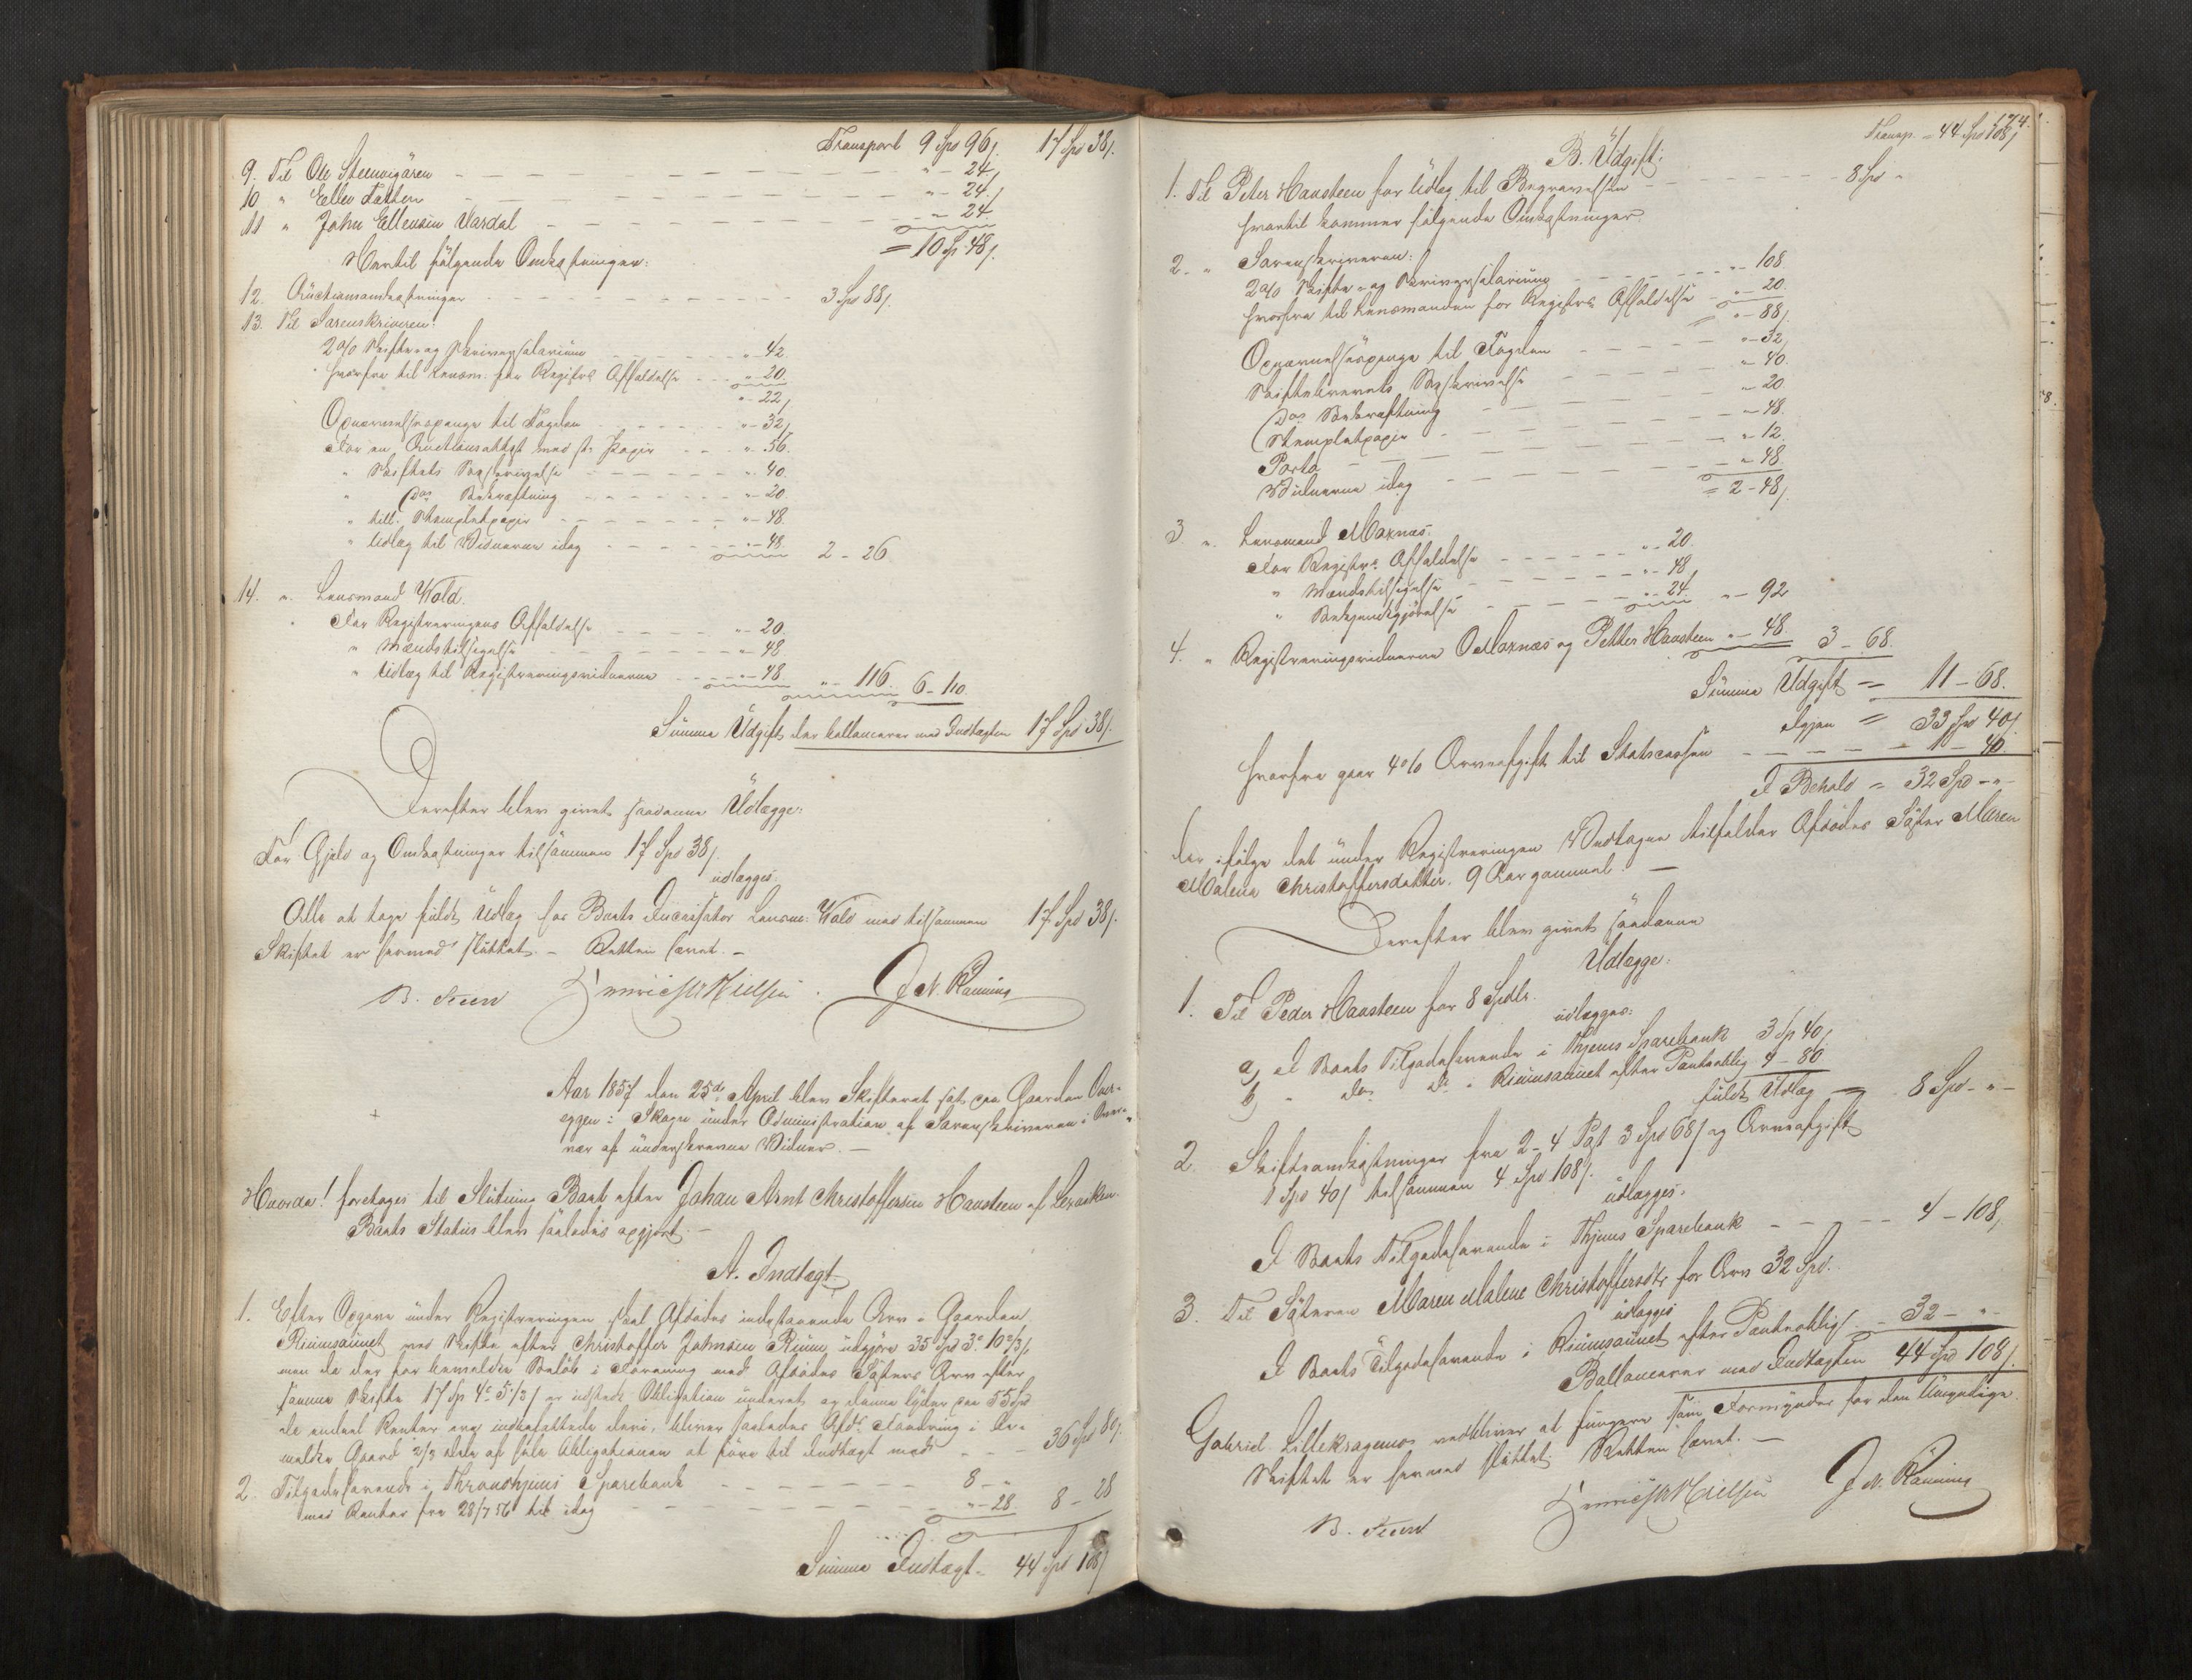 Transport 9 Spd 96 /. 17 Spd 38/.
9. Til Ole Steenvigaren - - - " - 24/
10 " Eller Fatter - - - " - 24/
11 " John Ellewsen Vardal - - - " - 24.
= 10 Sp 48/.
Hertil følgende Omkostninger:
12. Auctionsomkostninger - - - 3 Spd 88/.
13. Til Sorenskriveren:
2 % Skifte- og Skriversalarium - - - " - 42.
hvorfra til Lensm. for Registrs Afholdelse - - - " 20.
" 22/
Opnævnelsespenge til Fogden - - - " - 32/
For en Auctionsattest med st. Papir - - - " - 56.
" Skiftets Beskrivelse - - - " - 40.
" Do Bekræftning - - - " - 20.
" till. Stempletpapir - - - " - 48.
" Udlæg til Vidnerne idag - - - " - 48. 2 - 26
14. " Lensmand Wold.
For Registreringens Afholdelse - - - " - 20.
" Mændstilsigelse - - - " - 48.
" Udlæg til Registreringsvidnerne - - - " - 48. " - 116 6 - 110.
Summa Udgift der ballancerer med Indtægten 17 Spd 38/.
Derefter blev givet saadanne Udlægge:
For Gjeld og Omkostninger tilsammen 17 Spd 38/.
udlægges:
Alle at tage fuldt Udlæg hos Boets Incassator Lensm: Wold med tilsammen 17 Spd 38/.
Skiftet er hermed sluttet. - Retten hævet. -
B. Steen Henrich Nielsen. J. N. Rønning
Aar 1857 den 25de April blev Skifteret sat paa Gaarden Over-
eggen i Skogn under Administration af Sorenskriveren i Over-
vær af underskrevne Vidner. -
Hvorda! foretages til Slutning Boet efter Johan Arnt Christoffersen Haasteen af Lexviken.
Boets Status blev saaledes opgjort. -
A. Indtægt.
1. Efter Opgave under Registreringen skal Afdødes indestaaende Arv i Gaarden
Riiumsaunet ved Skifte efter Christoffer Johnsen Riium udgjøre 35 Spd 3 10 2/3/,
men da der for bemeldte Beløb i Forening med Afdødes Søsters Arv efter
samme Skifte 17 Sp 4 5 1/3/ er udstedt Obligation underet og denne lyder paa 55 Spd
de endeel Renter ere indbefattede deri, bliver saaledes Afds Fordring i be-
meldte Gaard 2/3 Dele af hele Obligationen at føre til Indtægt med - - - 36 Spd 80/.
2. Tilgodehavende i Throndhjems Sparebank - - - 8 - "
med Renter fra 28/7 56 til idag - - - " - 28. 8 - 28
Summa Indtægt = 44 Spd 108/
174.
Transp. = 44 Spd 108/
B. Udgift:
1. Til Peter Haasteen for Udlæg til Begravelsen - - - 8 Spd "
hvortil kommer følgende Omkostninger.
2. " Sorenskriveren:
2 % Skifte- og Skriversalarium - - - " - 108
hvorfra til Lensmanden for Registrs Afholdelse - - - " - 20.
= " - 88/.
Opnævnelsespenge til Fogden - - - " - 32/
Skiftebrevets Beskrivelse - - - " - 40.
Do Bekræftning - - - " - 20
Stempletpapir - - - " - 48.
Porto - - - " - 12.
Vidnerne idag - - - " - 48
= 2 - 48/.
3. " Lensmand Moxnæs.
For Registrs Afholdelse - - - " - 20.
" Mændstilsigelse - - - " - 48
" Bekjendtgjørelse - - - " - 24 " - 92
4. " Registreringsvidnerne O Moxnæs og Petter Haasteen " - 48 3 - 68.
Summa Udgift = 11 - 68.
Igjen = 33 Spd 40/
hvorfra gaar 4 % Arveafgift til Statscassen - - - 1 - 40.
I Behold = 32 Spd - " -
der ifølge det under Registreringen Vedtagne tilfalder Afdødes Søster Maren
Malena Christoffersdatter. 9 Aar gammel. -
Derefter blev givet saadanne
Udlægge:
1. Til Peder Haasteen for 8 Spdlr.
udlægges:
a, I Boets Tilgodehavende i Thjems Sparebank 3 Sp 40/
b, " do do i Riiumsaunet efter Panteoblig 4 - 80
fuldt Udlæg = 8 Spd - " -
2. Skifteomkostninger fra 2 - 4 Pst 3 Spd 68/ og Arveafgift
1 Spd 40/ tilsammen 4 Spd 108/.
udlægges.
I Boets Tilgodehavende i Thjems Sparebank - - - 4 - 108/
3. Til Søsteren Maren Malene Christoffersdtr for Arv 32 Spd.
udlægges
I Boets Tilgodehavende i Riiumsaunet efter Panteoblig. - 32 - " -
Ballancerer med Indtægten 44 Spd 108/.
Gabriel Lillekragemo vedbliver at fungere som Formynder for den Umyndige.
Skiftet er hermed sluttet. Retten hævet. -
B. Steen Henrich Nielsen J. N. Rønning